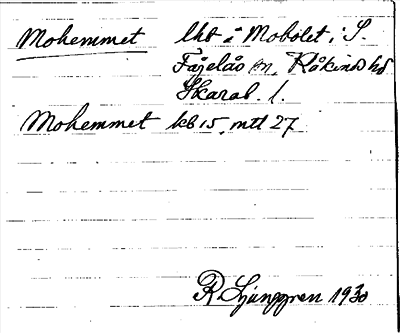 Mohemmet lht i Mobolet i S.
Fågelås sn, Kåkinds hd
Skarab. l.
Mohemmet kb 15, mtl 27
R Ljunggren 1930